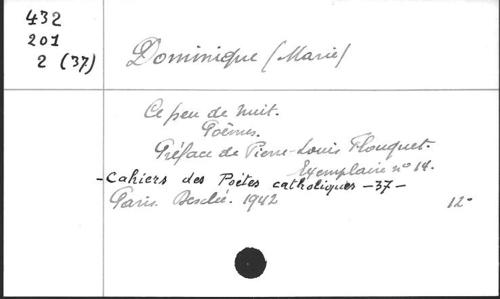 432
201
2 (37)
Dominique (Marie)
Ce peu de nuit.
Poèmes.
Préface de Pierre-Louis Flouquet.
Exemplaire n° 14.
- Cahiers des Poètes catholiques - 37 -
Paris. Desclée. 1942 12°